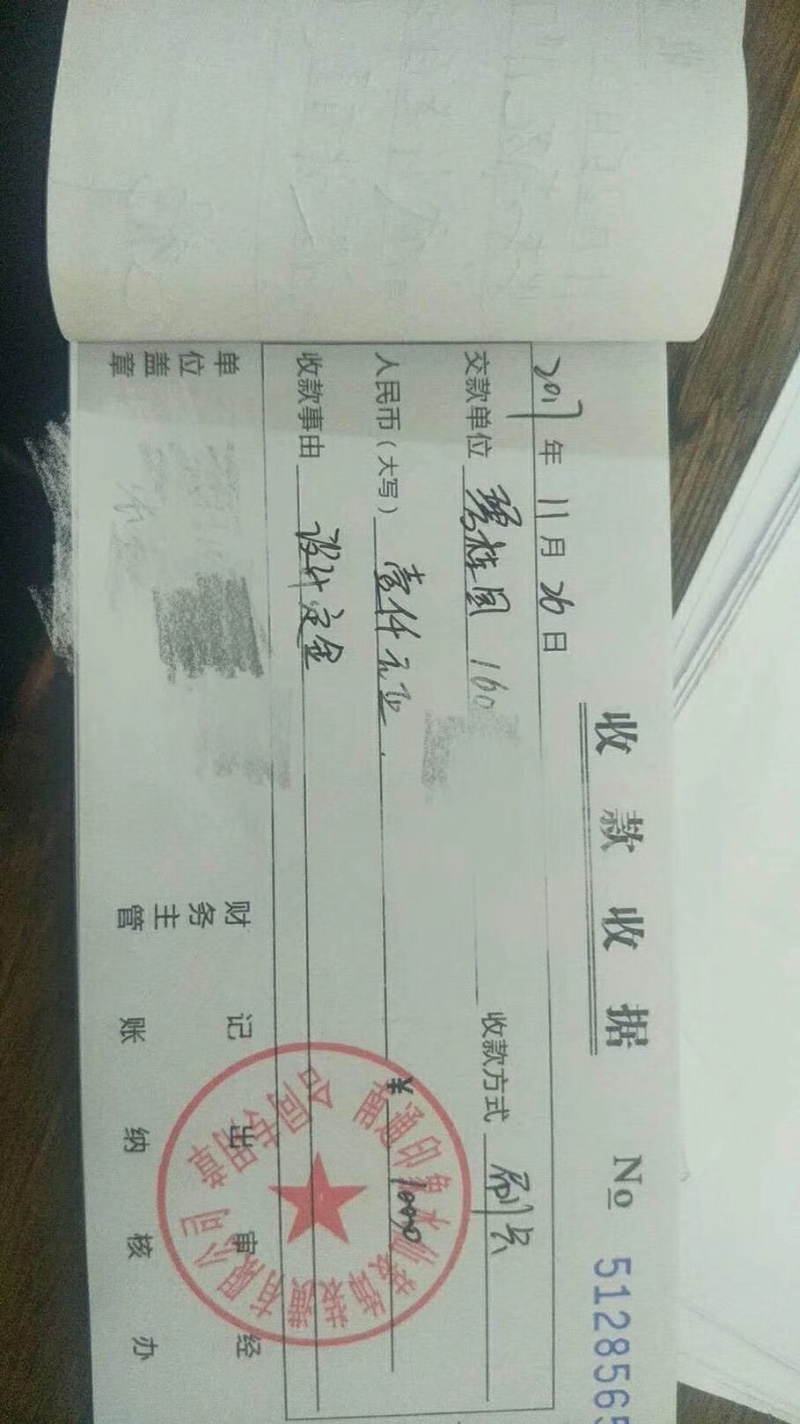 收款收据 No 5128565
2017年11月26日
交款单位 碧桂园 160 收款方式 刷卡
人民币(大写) 壹仟元正. ¥ 1000
收款事由 设计定金
单位盖章 财务主管 记账 出纳 审核 经办
南通印象水仙装饰有限公司
合同专用章